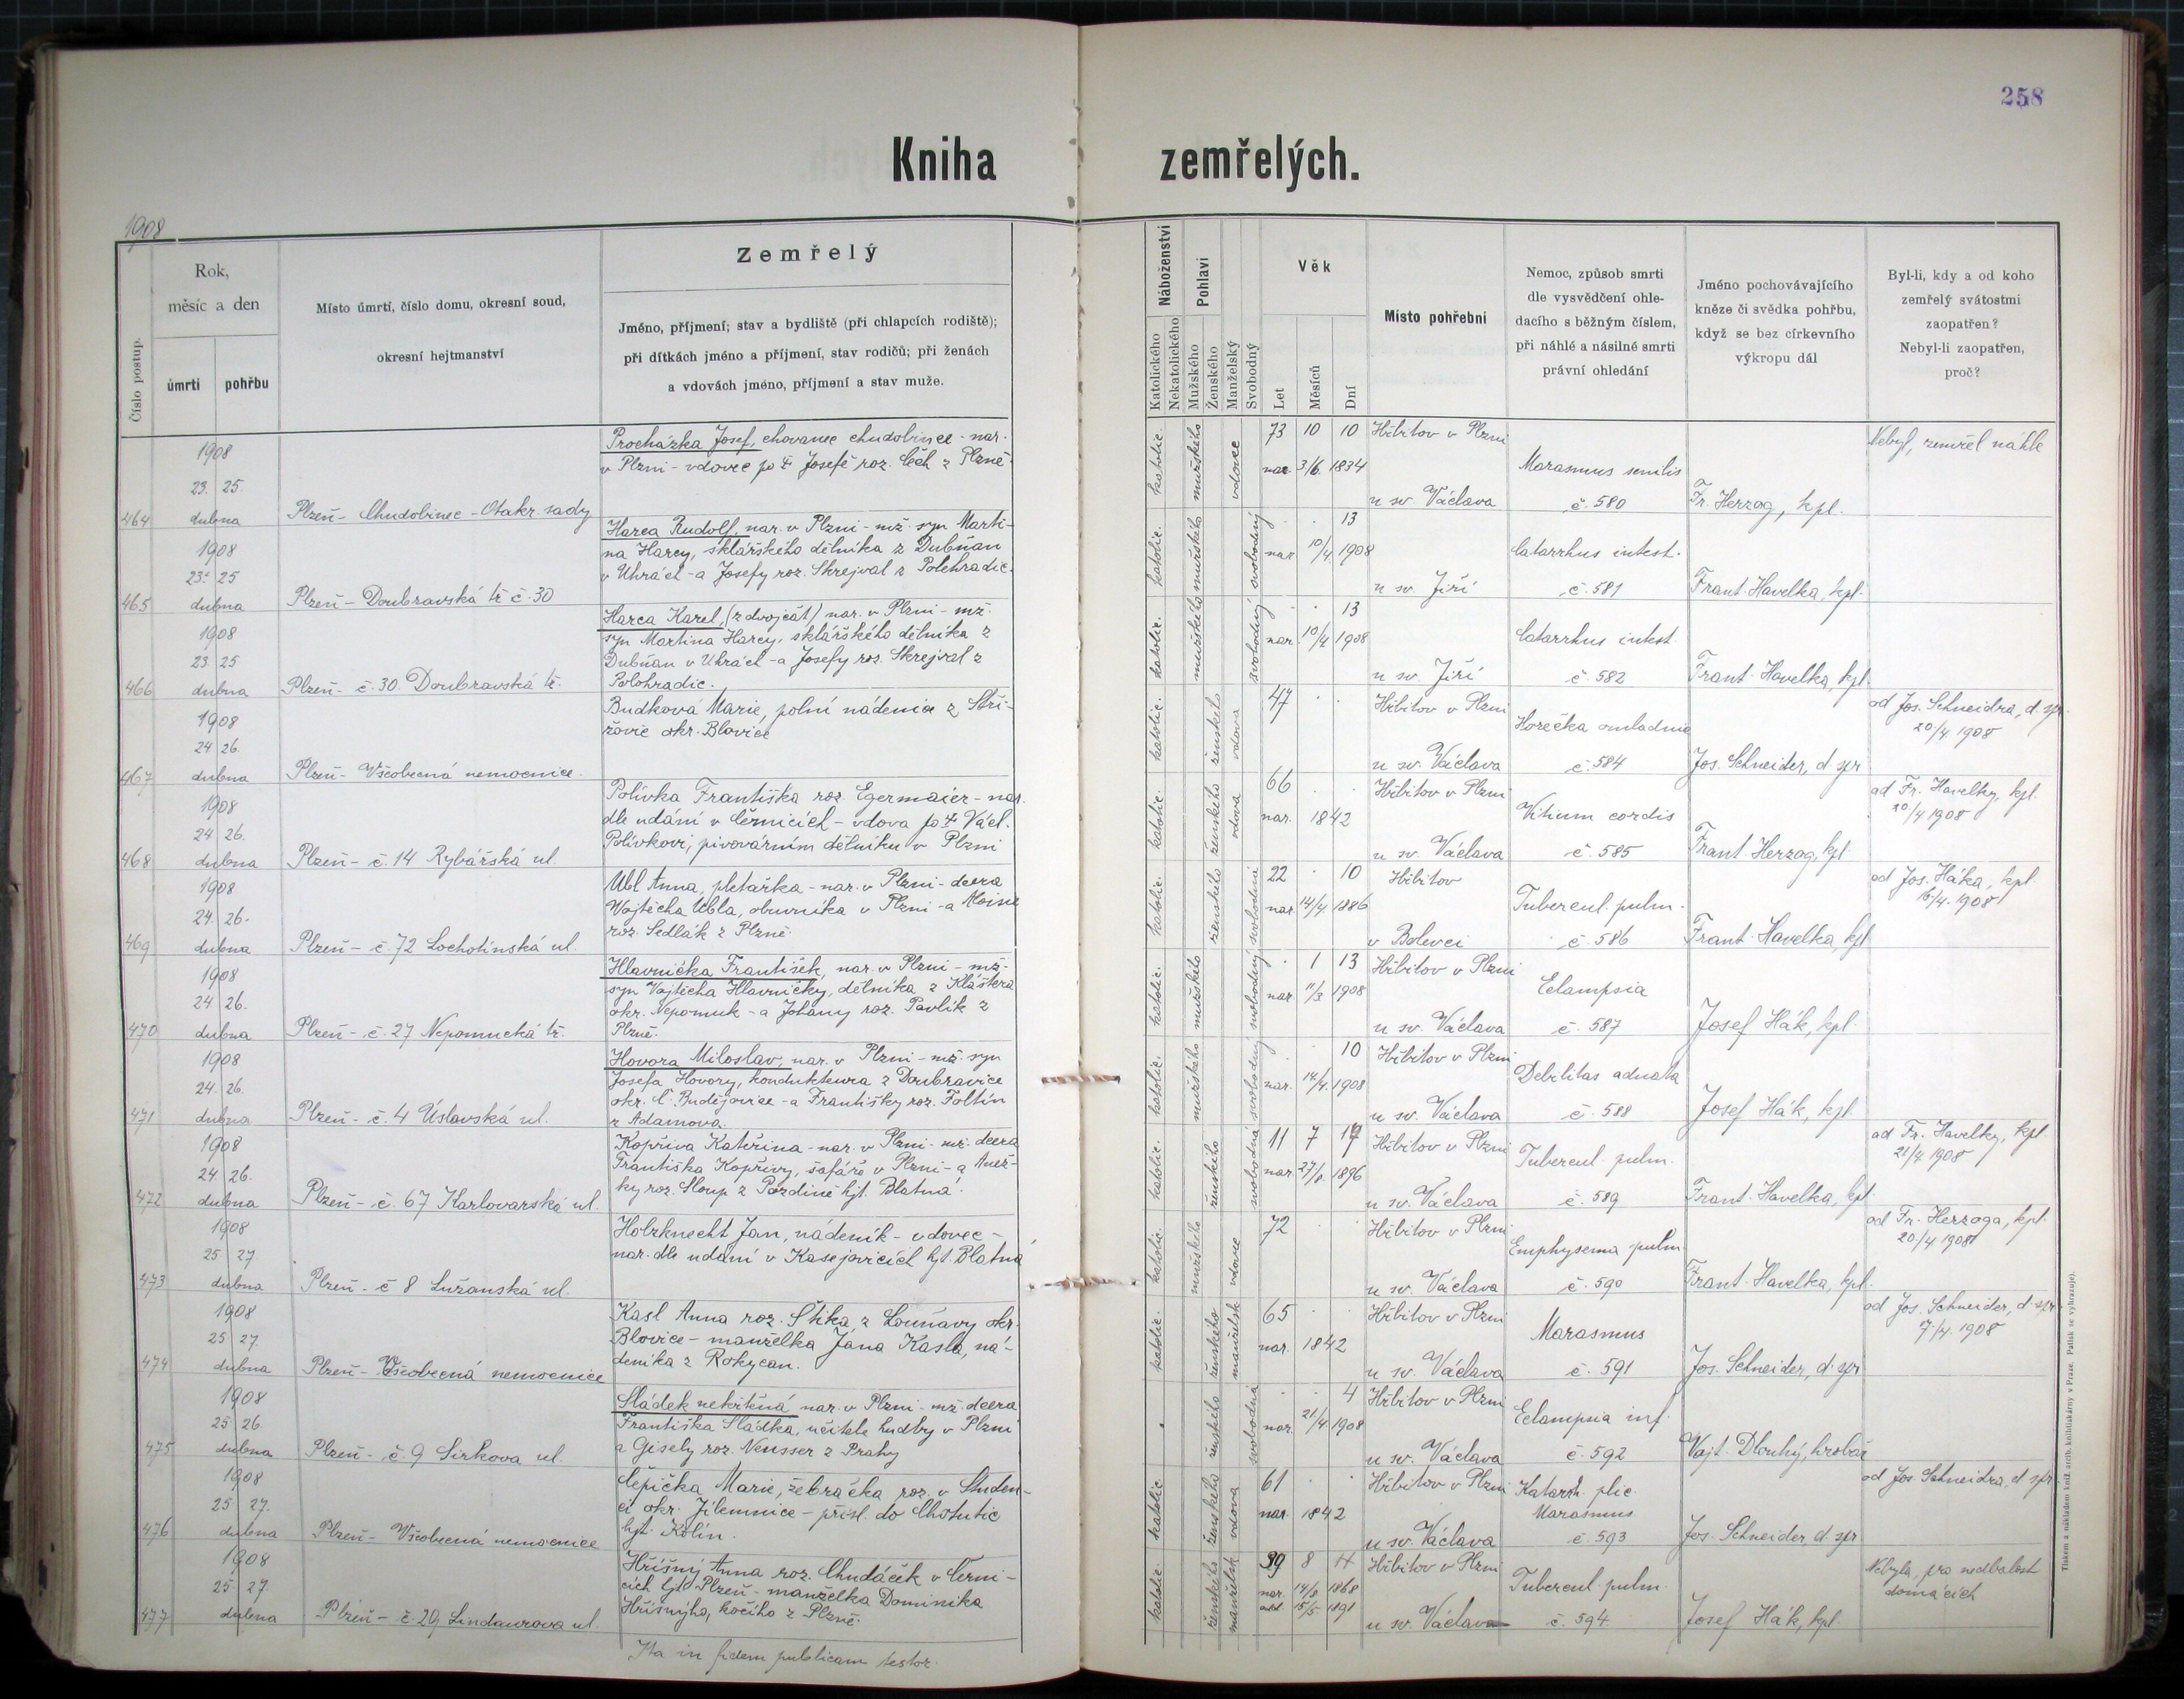 258
Kniha zemřelých.
1908
Číslo postup.
Rok,
měsíc a den
úmrtí
pohřbu
Místo úmrtí, číslo domu, okresní soud,
okresní hejtmanství
Zemřelý
Jméno, příjmení; stav a bydliště (při chlapcích rodiště);
při dítkách jméno a příjmení, stav rodičů; při ženách
a vdovách jméno, příjmení a stav muže.
Náboženství
Katolického
Nekatolického
Pohlaví
Mužského
Ženského
Manželský
Svobodný
Věk
Let
Měsíců
Dní
Místo pohřební
Nemoc, způsob smrti
dle vysvědčení ohle-
dacího s běžným číslem,
při náhlé a násilné smrti
právní ohledání
Jméno pochovávajícího
kněze či svědka pohřbu,
když se bez církevního
výkropu dál
Byl-li, kdy a od koho
zemřelý svátostmi
zaopatřen?
Nebyl-li zaopatřen,
proč?
464
1908
23. 25.
dubna
Plzeň - Chudobinec - Otakr. sady
Procházka Josef, chovanec chudobince - nar.
v Plzni - vdovec po † Josefě roz. Čech z Plzně.
katolic. mužského vdovec
73 10 10
nar. 3/6. 1834
Hřbitov v Plzni
u sv. Václava
Marasmus senilis
č. 580
Fr. Herzog, kpl.
Nebyl, zemřel náhle
465
1908
23. 25
dubna
Plzeň - Doubravská tř. č. 30
Harca Rudolf, nar. v Plzni - mž. syn Marti-
na Harcy, sklářského dělníka z Dubňan
v Uhrách - a Josefy roz. Skrejval z Polehradic.
katolic. mužského svobodný
13
nar. 10/4. 1908
u sv. Jiří
Catarrhus intest.
č. 581
Frant. Havelka, kpl.
466
1908
23 25
dubna
Plzeň - č. 30. Doubravská tř.
Harca Karel, (z dvojčat) nar. v Plzni - mž.
syn Martina Harcy, sklářského dělníka z
Dubňan v Uhrách - a Josefy roz. Skrejval z
Polohradic.
katolic. mužského svobodný
13
nar. 10/4 1908
u sv. Jiří
Catarrhus intest.
č. 582
Frant. Havelka, kpl.
467
1908
24 26.
dubna
Plzeň - Všeobecná nemocnice.
Budková Marie, polní nádenice z Stři-
žovic okr. Blovice
katolic. ženského vdova
47
Hřbitov v Plzni
u sv. Václava
Horečka omladnic
č. 584
Jos. Schneider, d. spr
od Jos. Schneidra, d. spr.
20/4 1908
468
1908
24 26.
dubna
Plzeň - č. 14 Rybářská ul.
Polívka Františka roz. Egermaier - nar.
dle udání v Černicích - vdova po † Václ.
Polívkovi, pivovárním dělníku v Plzni
katolic. ženského vdova
66
nar. 1842
Hřbitov v Plzni
u sv. Václava
Vitium cordis
č. 585
Frant. Herzog, kpl.
od Fr. Havelky, kpl.
20/4 1908
469
1908
24. 26.
dubna
Plzeň - č. 72 Lochotínská ul.
Ubl Anna, pletařka - nar. v Plzni - dcera
Vojtěcha Ubla, obuvníka v Plzni - a
roz. Sedlák z Plzně.
katolic. ženského svobodná
22 10
nar. 14/4. 1886
Hřbitov
v Bolevci
Tubercul. pulm.
č. 586
Frant. Havelka, kpl
od Jos. Háka, kpl.
16/4. 1908
470
1908
24 26.
dubna
Plzeň - č. 27 Nepomucká tř.
Hlavnička František, nar. v Plzni - mž.
syn Vojtěcha Hlavničky, dělníka z Kláštera
okr. Nepomuk - a Johany roz. Pavlík z
Plzně.
katolic. mužského svobodný
1 13
nar. 11/3 1908
Hřbitov v Plzni
u sv. Václava
Eclampsia
č. 587
Josef Hák, kpl.
471
1908
24. 26.
dubna
Plzeň - č. 4 Úslavská ul.
Hovora Miloslav, nar. v Plzni - mž. syn
Josefa Hovory, kondukteura z Doubravice
okr. Č. Budějovice - a Františky roz. Foltin
z Adamova.
katolic. mužského svobodný
10
nar. 14/4. 1908
Hřbitov v Plzni
u sv. Václava
Debilitas adnata
č. 588
Josef Hák, kpl.
472
1908
24. 26.
dubna
Plzeň - č. 67 Karlovarská ul.
Kopřiva Kateřina - nar. v Plzni - mž. dcera
Františka Kopřivy, šafáře v Plzni - a Anež-
ky roz. Sloup z Pozdině hjt. Blatná.
katolic. ženského svobodná
11 7
nar. 27/8. 1896
Hřbitov v Plzni
u sv. Václava
Tubercul. pulm.
č. 589
Frant. Havelka, kpl
od Fr. Havelky, kpl.
21/4 1908
473
1908
25 27.
dubna
Plzeň - č 8 Lužanská ul.
Holzknecht Jan, nádeník - vdovec -
nar. dle udání v Kasejovicích hjt. Blatná
katolic. mužského vdovec
72
Hřbitov v Plzni
u sv. Václava
Emphysema pulm
č. 590
Frant. Havelka, kpl.
od Fr. Herzoga, kpl.
20/4. 1908
474
1908
25 27.
dubna
Plzeň - Všeobecná nemocnice
Kasl Anna roz. Štika z Louňavy okr.
Blovice - manželka Jána Kasla, ná-
deníka z Rokycan.
katolic. ženského manželsk
65
nar. 1842
Hřbitov v Plzni
u sv. Václava
Marasmus
č. 591
Jos. Schneider, d. spr
od Jos. Schneider, d. spr
17/4. 1908
475
1908
25 26
dubna
Plzeň - č. 9 Sirkova ul.
Sládek nekřtěná nar. v Plzni - mž. dcera
Františka Sládka, učitele hudby v Plzni
a Gisely roz. Neusser z Prahy
ženského svobodná
4
nar. 21/4. 1908
Hřbitov v Plzni
u sv. Václava
Eclampsia inf.
č. 592
Vojt. Dlouhý, hrobař
476
1908
25 27.
dubna
Plzeň - Všeobecná nemocnice
Čepička Marie, žebračka roz. v Studen-
ci okr. Jilemnice - přísl. do Chotutic
hjt. Kolín.
katolic ženského vdova
61
nar. 1842
Hřbitov v Plzni
u sv. Václava
Katarrh. plic.
Marasmus
č. 593
Jos. Schneider, d. spr
od Jos. Schneidra, d. spr
477
1908
25. 27.
dubna
Plzeň - č. 29 Lindaurova ul.
Hříšný Anna roz. Chudáček v Černi-
cích hjt Plzeň - manželka Dominika
Hříšnýho, kočího z Plzně.
katolic. ženského manželsk
39 8 11
nar. 14/8 1868
odd. 15/5 1891
Hřbitov v Plzni
u sv. Václava
Tubercul. pulm.
č. 594.
Josef Hák, kpl.
Nebyla, pro nedbalost
domácích
Ita in fidem publicam testor.
Tiskem a nákladem kníž. arcib. knihtiskárny v Praze. Patisk se vyhrazuje.